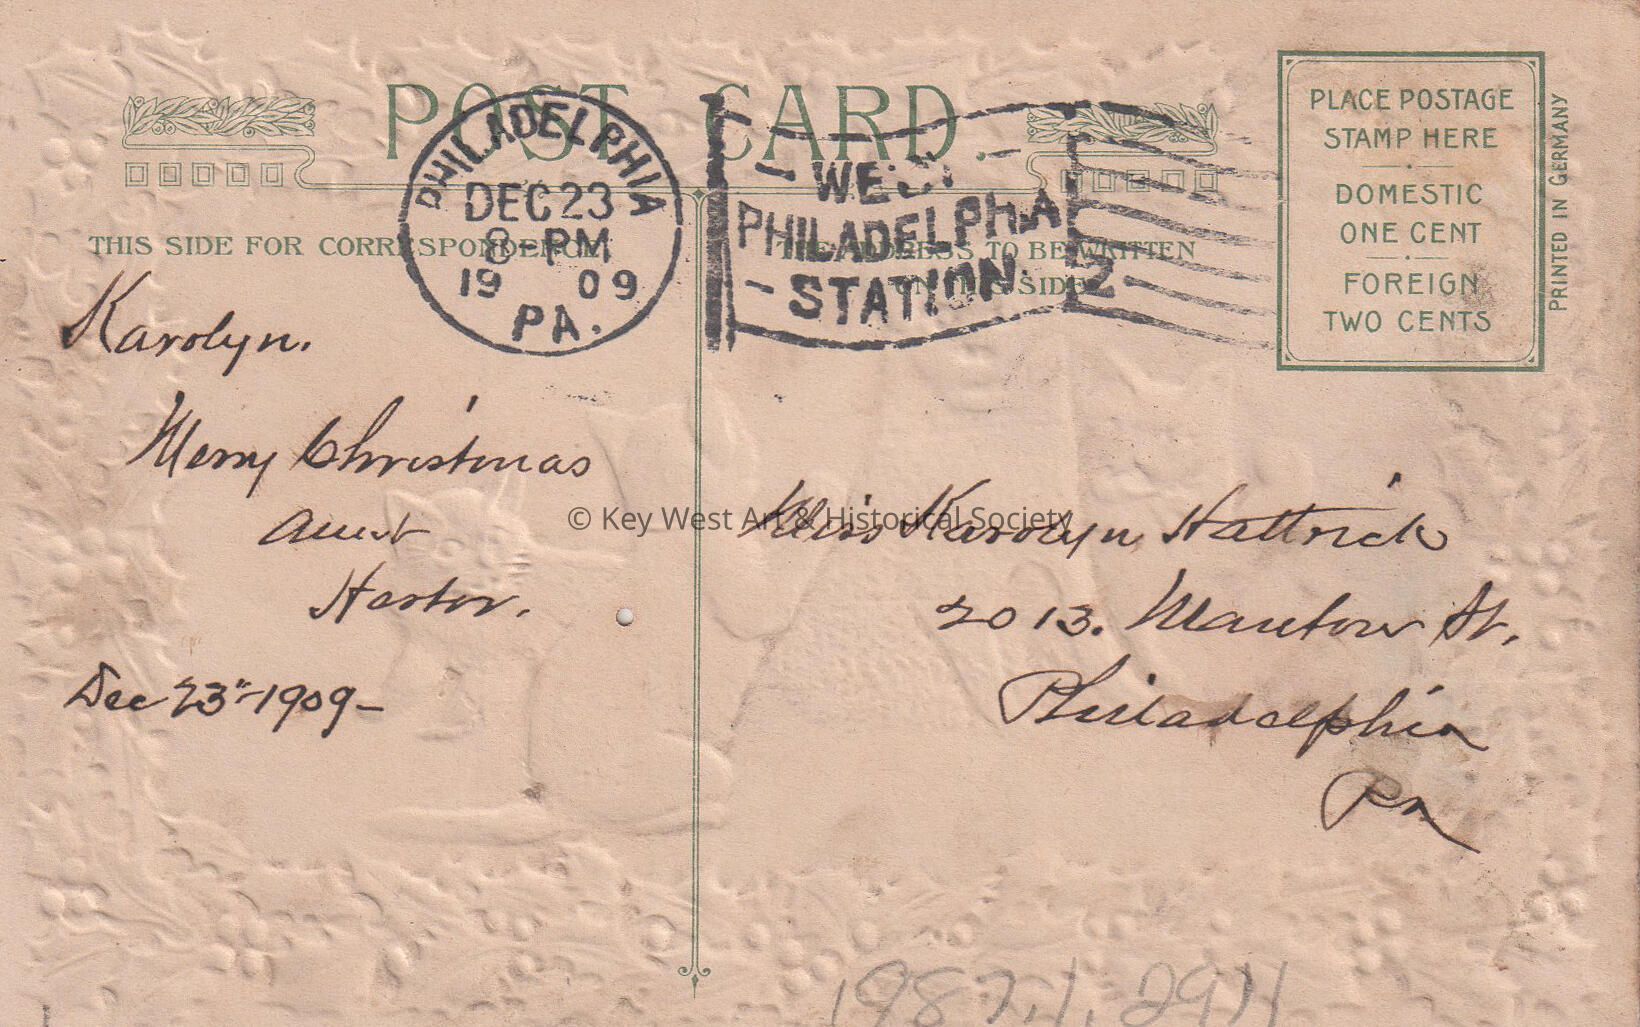 POST CARD.
THIS SIDE FOR CORRESPONDENCE
THE ADDRESS TO BE WRITTEN
ON THIS SIDE
PHILADELPHIA
DEC 23
8-PM
19 09
PA.
WEST
PHILADELPHIA
STATION.
2
PLACE POSTAGE
STAMP HERE
DOMESTIC
ONE CENT
FOREIGN
TWO CENTS
PRINTED IN GERMANY
Karolyn.
Merry Christmas
Aunt
Dec 23" 1909-
© Key West Art & Historical Society
Miss Karolyn Hattrick
2013. St.
Philadelphia
Pa
1987.1.2911